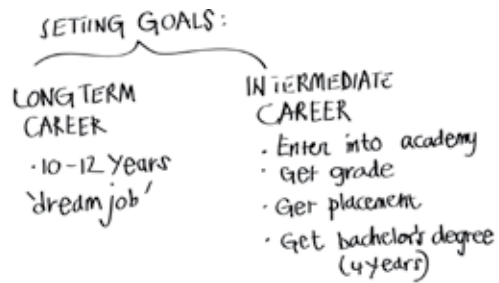 SETTING GOALS:
LONG TERM
CAREER
· 10-12 Years
'dream job'
INTERMEDIATE
CAREER
· Enter into academy
· Get grade
· Get placement
· Get bachelor's degree
(4 years)